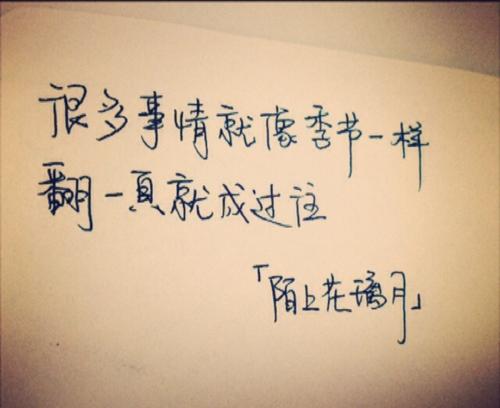 很多事情就像季节一样
翻一頁就成过往
「陌上花璃月」